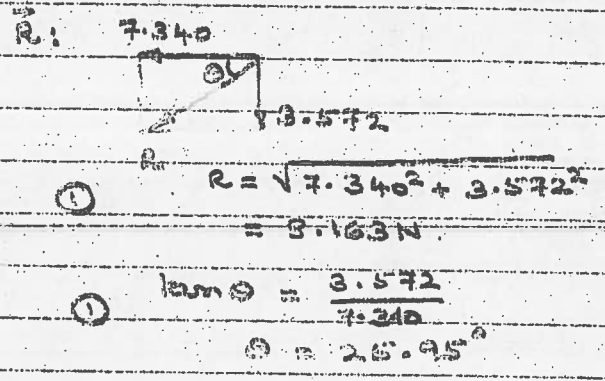 R: 7.340
θ
3.572
R
① R = √7.340² + 3.572²
= 8.163 N.
① tan θ = 3.572 / 7.340
θ = 25.95°